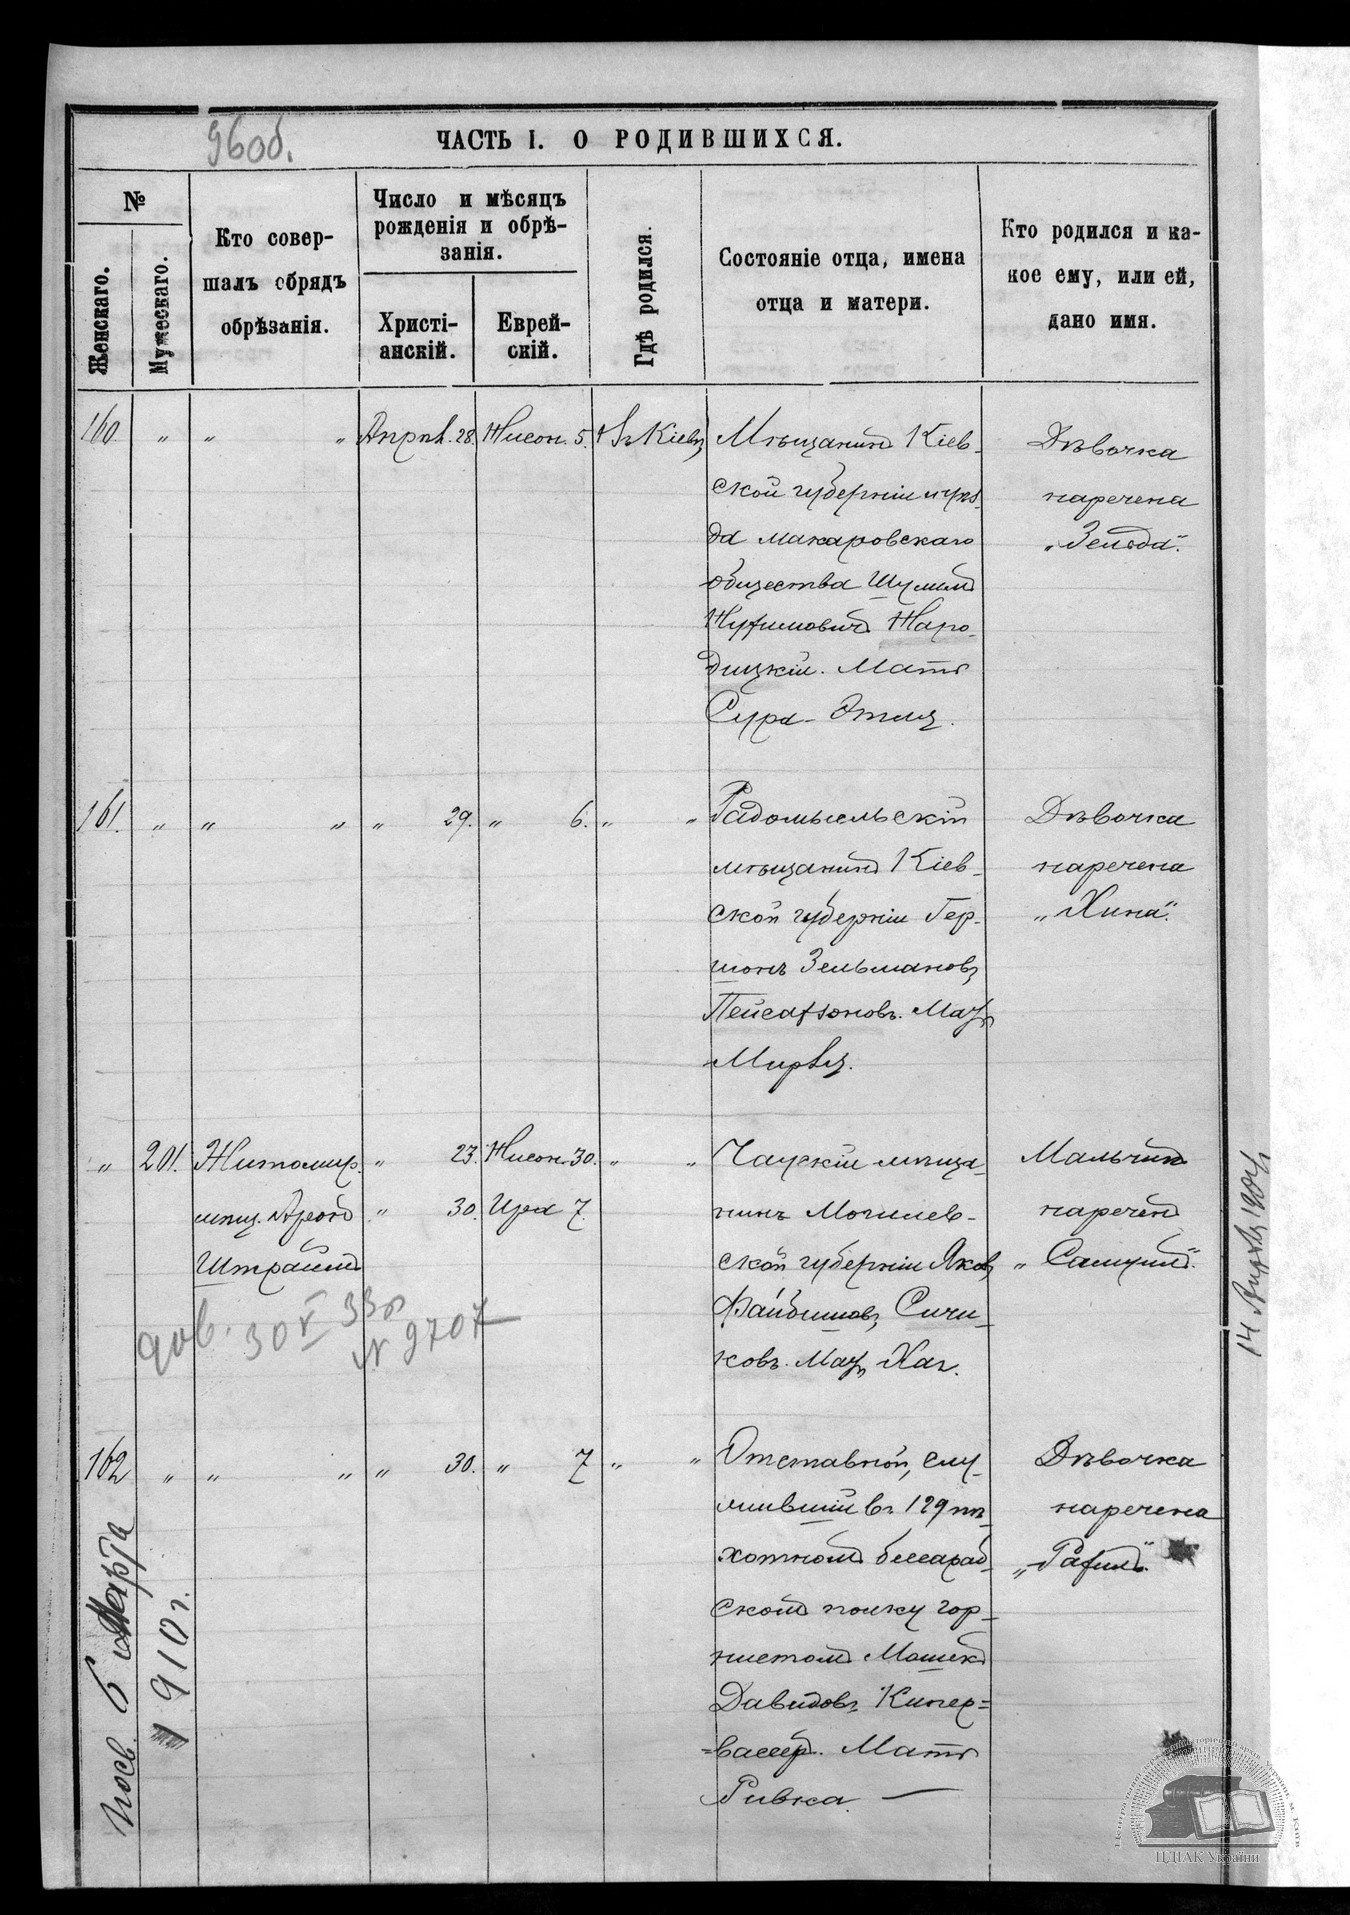 96об.
ЧАСТЬ I. О РОДИВШИХСЯ.
№
Женскаго.
Мужескаго.
Кто совер-
шалъ обрядъ
обрѣзанія.
Число и мѣсяцъ
рожденія и обрѣ-
занія.
Христі-
анскій.
Еврей-
скій.
Гдѣ родился.
Состояніе отца, имена
отца и матери.
Кто родился и ка-
кое ему, или ей,
дано имя.
160. " " " Апрѣл. 28. Нисон. 5. Въ Кіевѣ
Мѣщанинъ Кіев-
ской губерніи и уѣз-
да Макаровскаго
общества Шулимъ
Нухимовичъ Наро-
дицкій. Мать
Сура-Этля.
Дѣвочка
наречена
„Зельда".
161. " " " " 29. " 6. " "
Радомысльскій
мѣщанинъ Кіев-
ской губерніи Гер-
шонъ Зельмановъ
Пейсахзоновъ. Мать
Мирля.
Дѣвочка
наречена
„Хина".
" 201. Житомир. " 23. Нисон. 30. " "
мѣщ. Аронъ " 30. Ира 7.
Штраймъ
Чаускій мѣща-
нинъ Могилев-
ской губерніи Яковъ
Файбишовъ Сичи-
ковъ. Мать Хая.
Мальчикъ
нареченъ
„Самуилъ".
30 V 33г
N 9707
162 " " " " 30. " 7 " "
Отставной, слу-
жившій въ 129 пѣ-
хотномъ бессараб-
скомъ полку гор-
нистомъ Мошекъ
Давидовъ Кипер-
=вассеръ. Мать
Ривка. —
Дѣвочка
наречена
„Рахиль"
6 Марта
1910 г.
ЦДІАК України